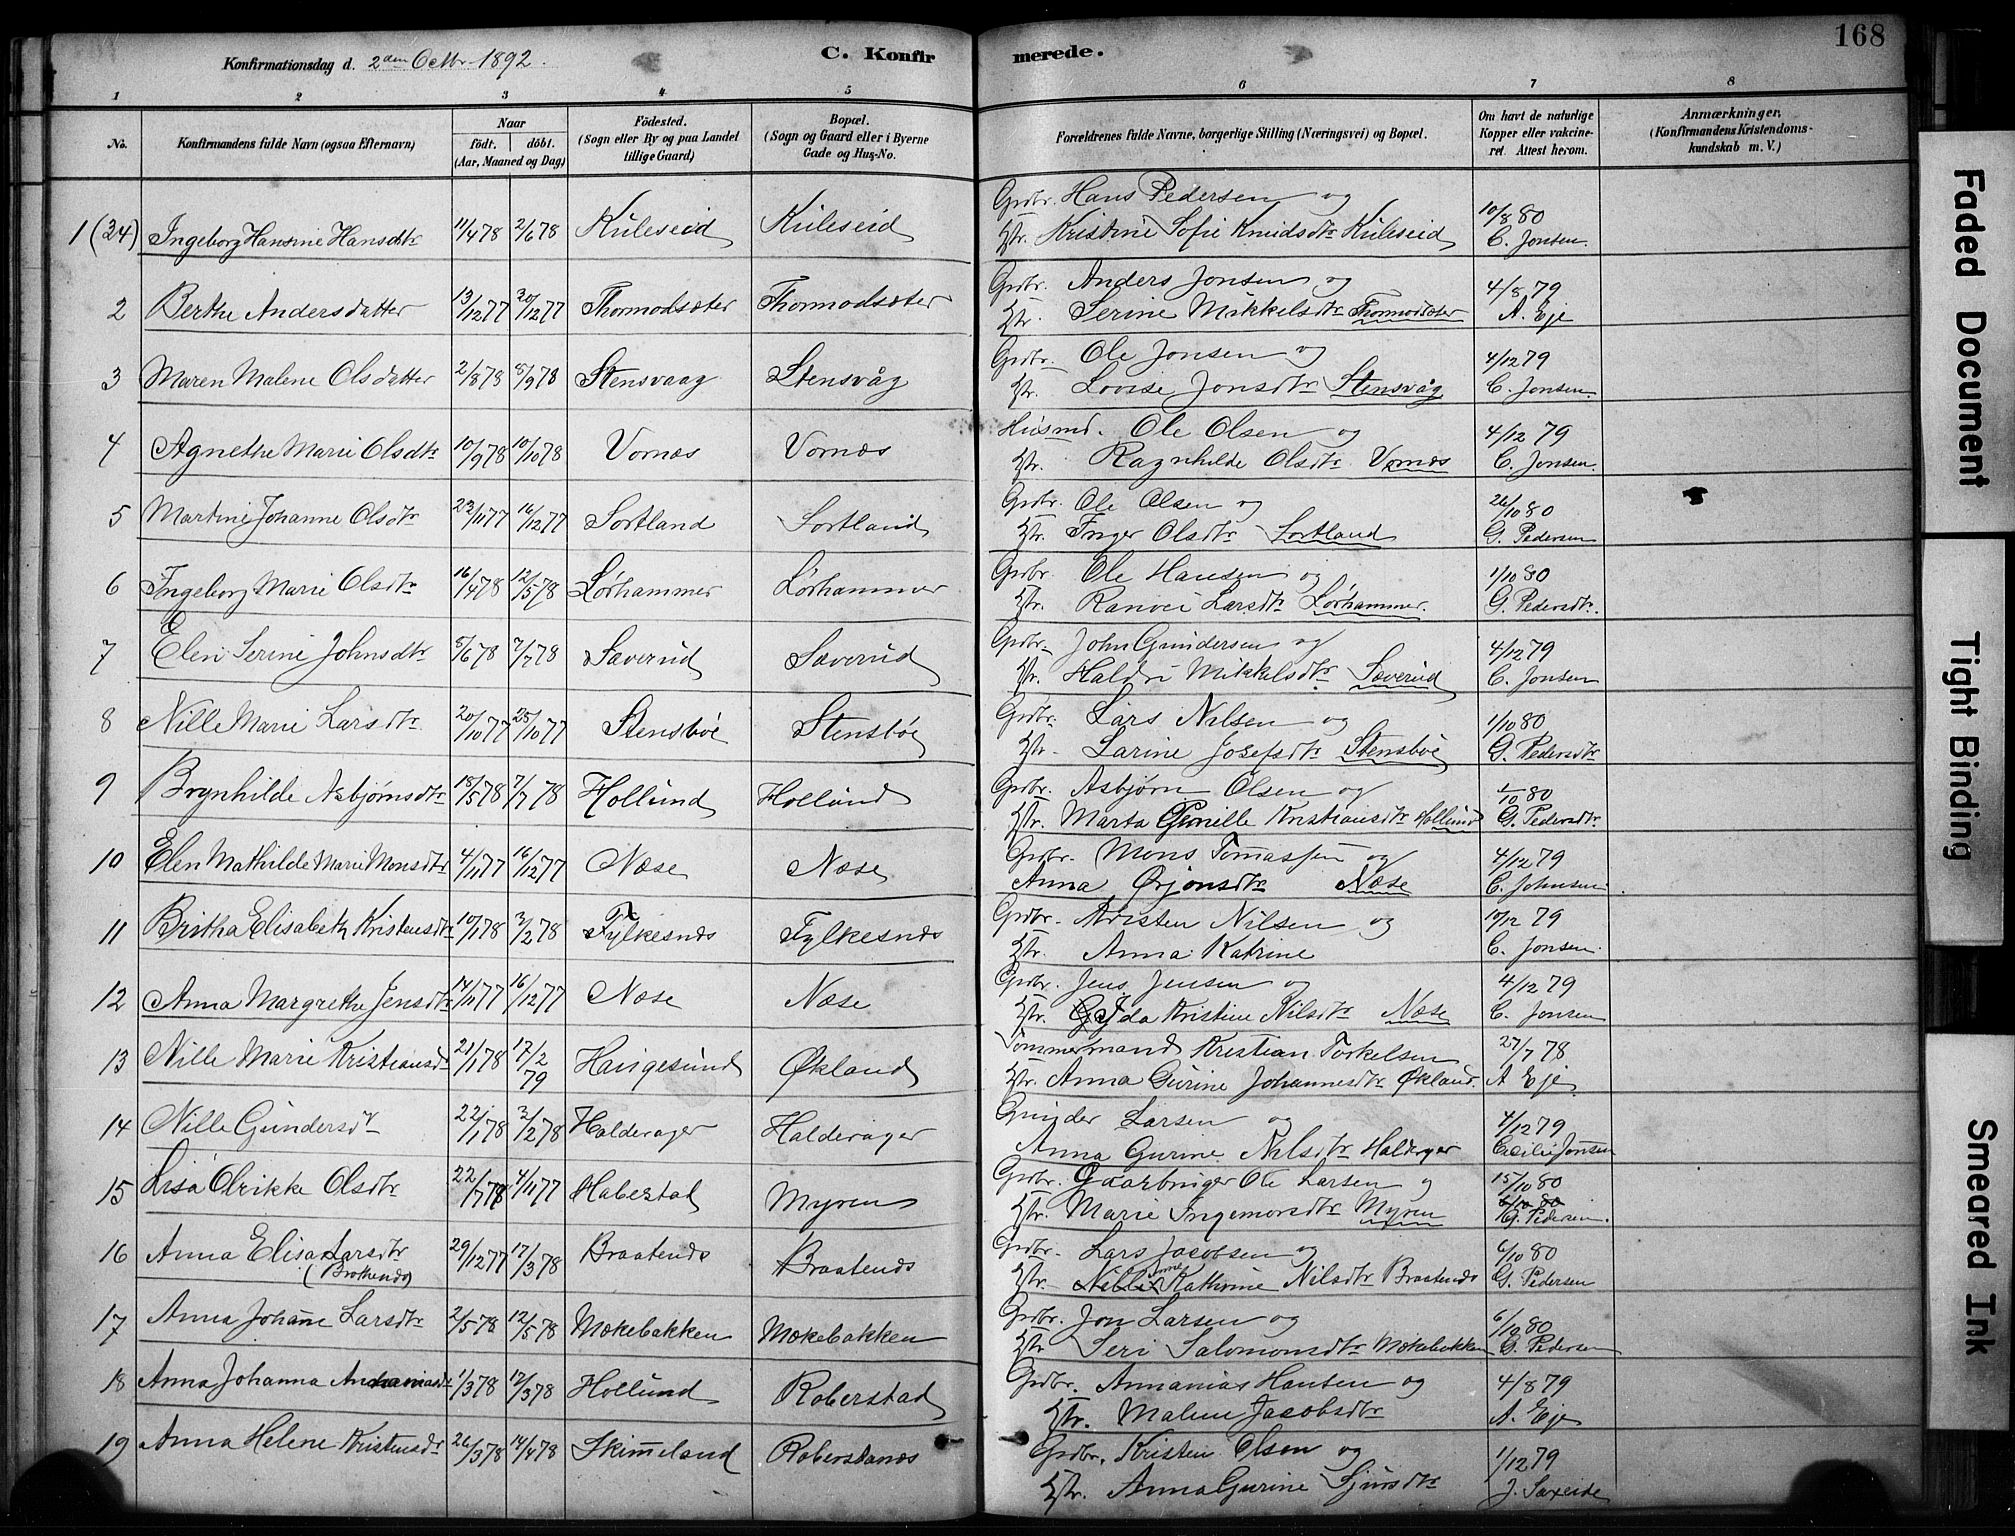 168
Konfirmationsdag d. 2den Octbr. 1892.
C. Konfirmerede.
1 2 3 4 5 6 7 8
No.
Konfirmandens fulde Navn (ogsaa Efternavn)
Naar
födt. döbt.
(Aar, Maaned og Dag)
Födested.
(Sogn eller By og paa Landet
tillige Gaard)
Bopæl.
(Sogn og Gaard eller i Byerne
Gade og Hus-No.
Forældrenes fulde Navne, borgerlige Stilling (Næringsvei) og Bopæl.
Om havt de naturlige
Kopper eller vakcine-
ret. Attest herom.
Anmærkninger.
(Konfirmandens Kristendoms-
kundskab m. V.)
1 (24) Ingeborg Hansine Hansdtr 11/4 78 2/6 78 Kuleseid Kuleseid Grdbr. Hans Pedersen og 10/8 80
Kristine Sofie Knudsdtr Kuleseid C. Jonsen
2 Berthe Andersdatter 13/12 77 30/12 77 Thormodsæter Thormodsæter Grdbr. Anders Jonsen og 4/8 79
Serine Mikkelsdtr Thormodsæter A. Eje
3 Maren Malene Olsdatter 2/8 78 8/9 78 Stensvaag Stensvåg Grdbr. Ole Jonsen og 4/12 79
Lovise Jonsdtr Stensvåg C. Jonsen
4 Agnethe Marie Olsdtr 10/9 78 10/10 78 Vornæs Vornæs Husmd. Ole Olsen og 4/12 79
Ragnhilde Olsdtr Vornæs C. Jonsen
5 Martine Johanne Olsdtr 22/11 77 16/12 77 Sortland Sortland Grdbr. Ole Olsen og 26/10 80
Inger Olsdtr Sortland G. Pedersen
6 Ingeborg Marie Olsdtr 16/4 78 12/5 78 Lørhammer Lørhammer Grdbr. Ole Hansen og 1/10 80
Ranvei Larsdtr Lørhammer. G. Pedersdtr.
7 Elen Serine Johnsdtr 5/6 78 7/7 78 Sæverud Sæverud Grdbr. John Gundersen og 4/12 79
Haldri Mikkelsdtr Sæverud C. Jonsen
8 Nille Marie Larsdtr. 20/10 77 25/10 77 Stensbøe Stensbøe Grdbr. Lars Nilsen og 1/10 80
Larine Josefsdtr Stensbøe G. Pedersdtr
9 Brynhilde Asbjørnsdtr 18/5 78 7/7 78 Hollund Hollund Grdbr. Asbjørn Olsen og 1/10 80
Marta Gunille Kristiansdtr Hollund G. Pedersdtr.
10 Elen Mathilde Marie Monsdtr 4/11 77 16/12 77 Næse Næse Grdbr. Mons Tomassen og 4/12 79
Anna Ørjansdtr Næse C. Johnsen.
11 Britha Elisabeth Kristensdtr 10/1 78 3/2 78 Fylkesnæs Fylkesnæs Grdbr. Kristen Nilsen og 10/12 79
Anna Katrine C. Jonsen.
12 Anna Margrethe Jensdtr 14/11 77 16/12 77 Næse Næse Grdbr. Jens Jensen og 4/12 79
Ida Kristine Nilsdtr Næse C. Jonsen
13 Nille Marie Kristiansdtr 21/1 78 17/2 79 Haugesund Økland Tømmermand Kristian Torkelsen 27/7 78
Anna Gurine Johannesdtr Økland. A Eje
14 Nille Gundersdtr 22/1 78 3/2 78 Halderager Halderager Gunder Larsen og 4/12 79
Anna Gurine Nilsdtr Halderager Cecilie Jonsen
15 Lisa Olrikke Olsdtr 4/11 77 Haberstad Myren Grdbr. Gaarbruger Ole Larsen og 15/10 80
Marie Ingemorsdtr Myren G. Pedersen.
16 Anna Elisa Larsdtr 29/12 77 17/3 78 Braatenæs Braatenæs Grdbr. Lars Jacobsen og 6/10 80
Anne Kathrine Nilsdtr Braatenæs G. Pedersen
17 Anna Johanne Larsdtr 2/5 78 12/5 78 Mækebakken Mækebakken Grdbr. Jon Larsen og 6/10 80
Seri Salomonsdtr Mækebakken G. Pedersen
18 Anna Johanna Ananiasdtr 1/3 78 17/3 78 Hollund Roberstad Grdbr. Annanias Hansen og 4/8 79
Malene Jacobsdtr A. Eje
19 Anna Helene Kristensdtr 26/3 78 14/4 78 Skimmeland Roberstanæs Grdbr. Kristen Olsen og 1/12 79
Anna Gurine Sjursdtr J. Saxeide
Faded Document
Tight Binding
Smeared Ink